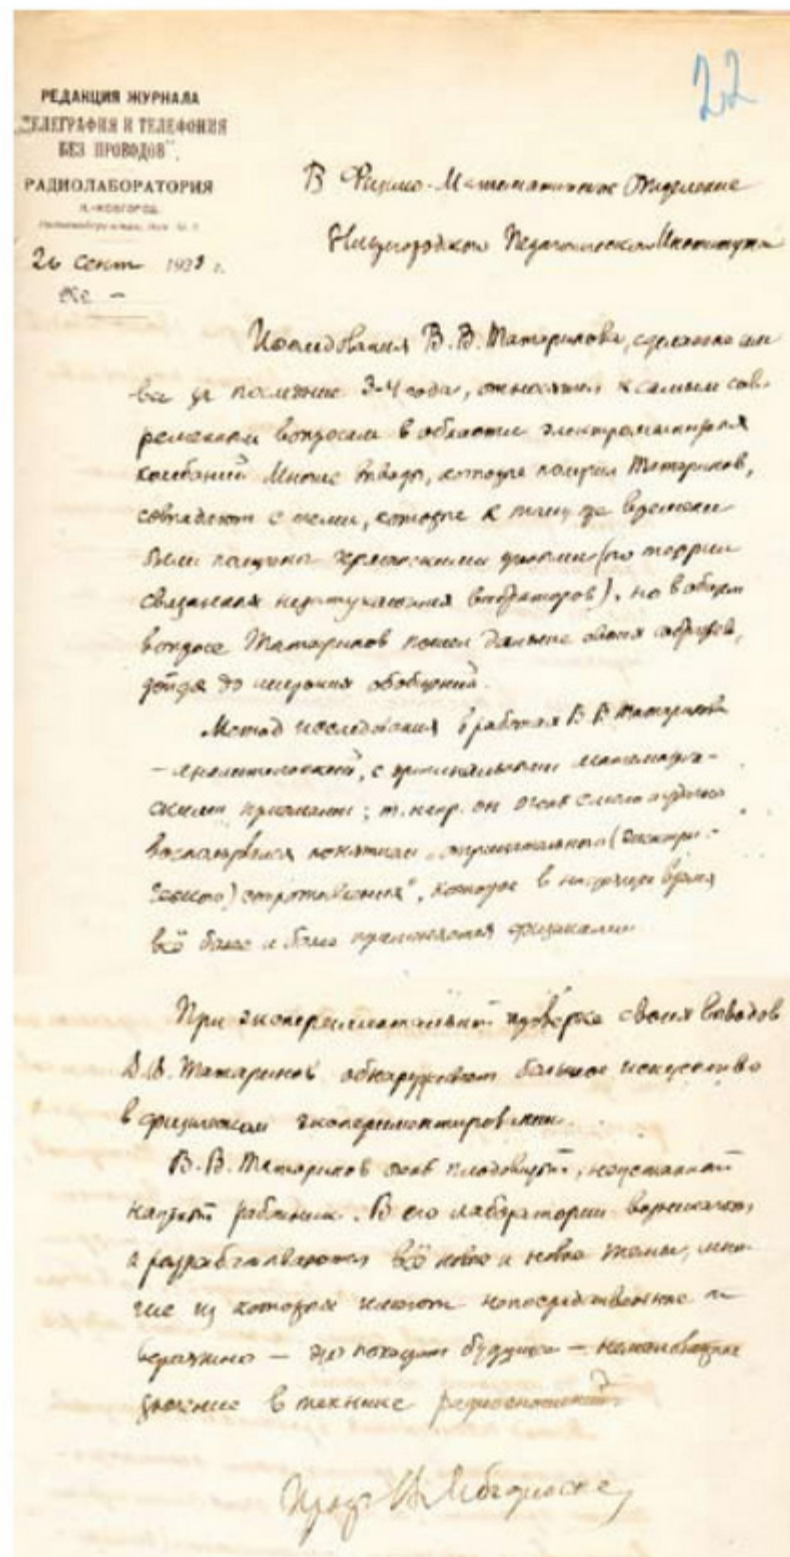 22
РЕДАКЦИЯ ЖУРНАЛА
„ТЕЛЕГРАФИЯ И ТЕЛЕФОНИЯ
БЕЗ ПРОВОДОВ"
РАДИОЛАБОРАТОРИЯ
Н.-НОВГОРОД.
26 сент 1923 г.
В Физико-Математическое Отделение
Нижегородского Педагогического Института
Исследования В. В. Татаринова, сделанные им
все за последние 3-4 года, относятся к самым сов-
ременным вопросам в области электромагнитных
колебаний. Многие выводы, которые получил Татаринов,
совпадают с теми, которые к тому же времени
были получены германскими учеными (по теории
связанных незатухающих вибраторов), но в общем
вопросе Татаринов пошел дальше своих собратьев,
дойдя до широких обобщений.
Метод исследования в работах В. В. Татаринова
— аналитический, с оригинальными математиче-
скими приемами; т. напр. он очень смело и удачно
воспользовался понятием „отрицательного (электри-
ческого) сопротивления", которое в настоящее время
всё более и более применяется физиками.
При экспериментальной проверке своих выводов
В. В. Татаринов обнаруживает большое искусство
в физическом экспериментировании.
В. В. Татаринов очень плодовитый, неустанный
научный работник. В его лаборатории возникают
и разрабатываются всё новые и новые темы, мно-
гие из которых имеют непосредственное и
вероятно — это покажет будущее — немаловажное
значение в технике радиосношений.
Проф. В. Лебединский